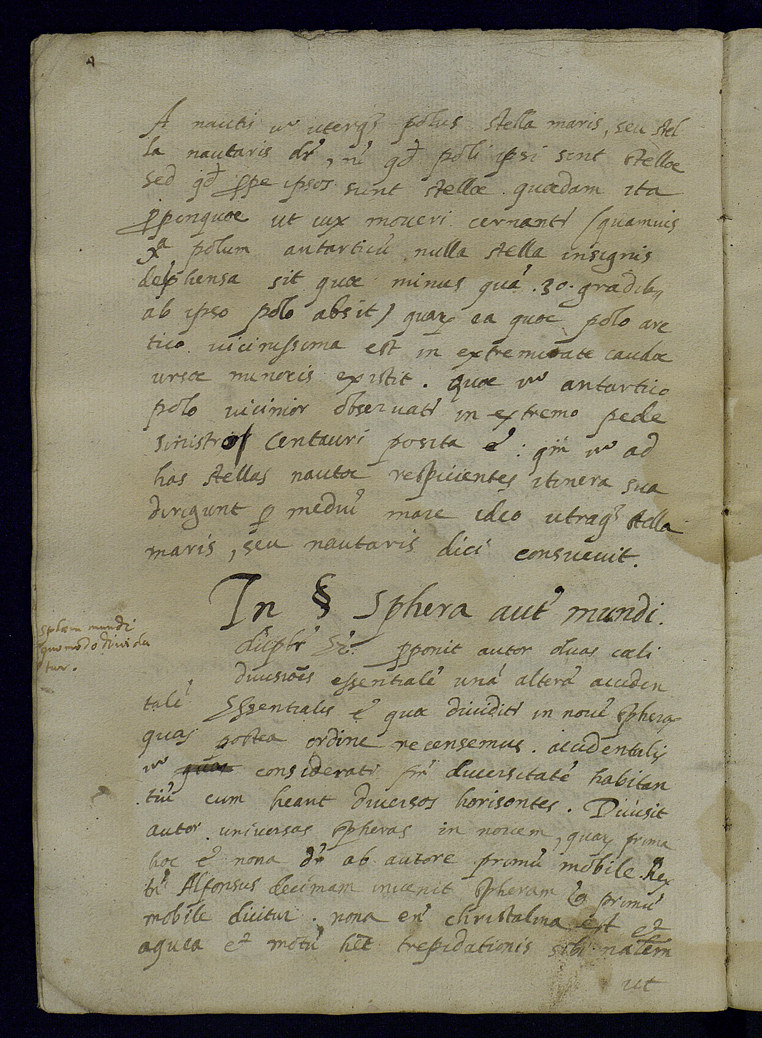 4
A nautis vº uterq₃ polus stella maris, seu stel
la nautaris dr̃, nõ qđ poli ipsi sint stellae
sed qđ ꝓpe ipsos sunt stellae quaedam ita
ꝓpinquae ut vix moveri cernant᷑ (quamvis
polum antarticũ nulla stella insignis
dep̃hensa sit quae minus quã .30. gradib₃
ab ipso polo absit) quaꝝ ea quae polo arc
tico vicinissima est in extremitate caudae
ursae minoris existit. Quae vº antartico
polo vicinior observat᷑ in extremo pede
sinistro Centauri posita ẽ: qm̃ vº ad
has stellas nautae respicientes itinera sua
dirigunt ꝑ mediũ mare ideo utraq₃ stella
maris, seu nautaris dici consuevit.
In § Sphera aut̃ mundi.
Sphera mundi
quomodo divida
tur.
ꝓponit autor duas caeli
divisiões essentialẽ unã alterã acciden
talẽ Essentialis ẽ quae dividit᷑ in novẽ spheras
quas postea ordine recensemus. accidentalis
vº considerat᷑ diversitatẽ habitan
tiũ cum heant diversos horisontes. Divisit
autor universas spheras in novem, quaꝝ prima
hoc ẽ nona dr̃ ab autore primũ mobile.
Alfonsus decimam invenit spheram primũ
mobile dicitur. nona en̄ christalina est et
aquea et motũ hẽt trepidationis sibi nalem
ut